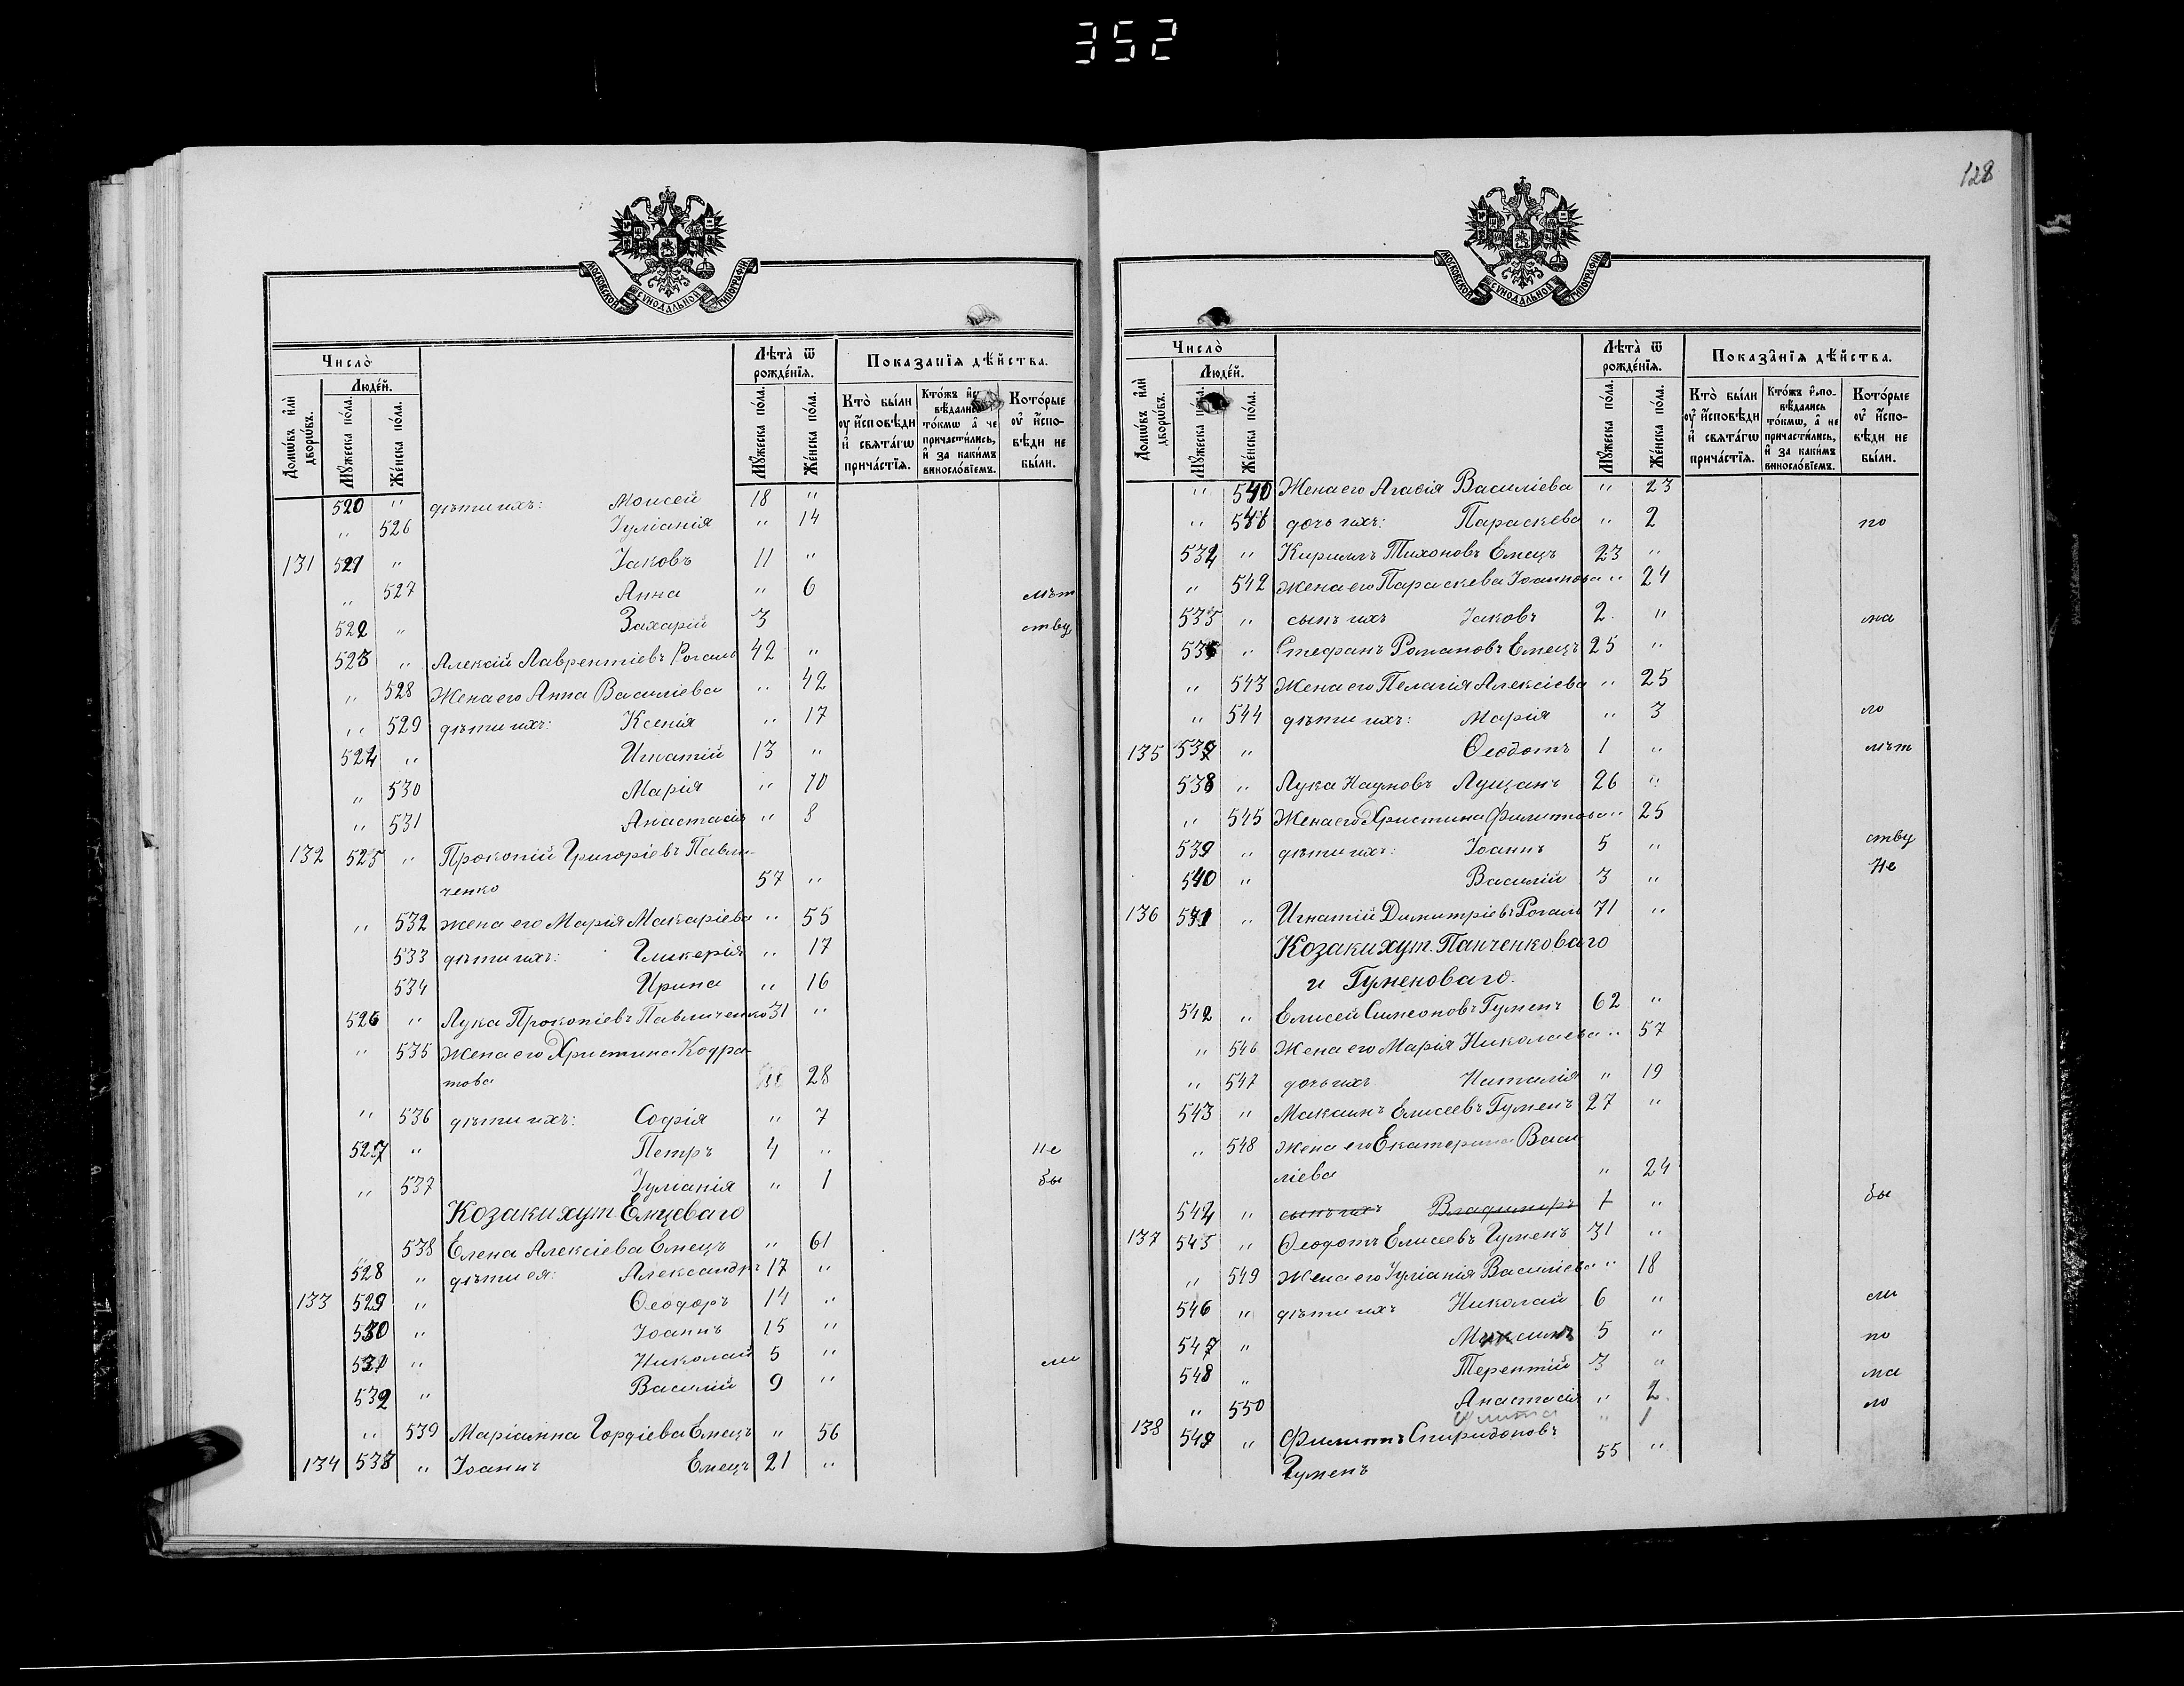 352
128
МОСКОВСКОЙ СѴНОДАЛЬНОЙ ТИПОГРАФІИ
Число̀
Домѡ́въ и҆лѝ дворѡ́въ.
Люде́й.
Мꙋ́жеска по́ла.
Же́нска по́ла.
Лѣта̀ ѿ рожде́нїѧ.
Мꙋ́жеска по́ла.
Же́нска по́ла.
Показа́нїѧ дѣ́йства.
Кто̀ бы́ли оу҆ и҆́сповѣди и҆ свѧта́гѡ прича́стїѧ.
Кто́жъ и҆споевѣ́дались то́кмѡ, а҆ не причасти́лись, и҆ за каки́мъ винословіемъ.
Кото́рые оу҆ и҆́сповѣди не бы́ли.
520 " дѣти ихъ: Моисей 18 "
" 526 Іуліанія " 14
131 521 " Іаковъ 11 "
" 527 Анна " 6 лѣт
522 " Захарій 3 ству
523 " Алексій Лаврентіевъ Рогаль 42 "
" 528 Жена его Анна Василіева " 42
" 529 дѣти ихъ: Ксенія " 17
524 " Игнатій 13 "
" 530 Марія " 10
" 531 Анастасія " 8
132 525 " Прокопій Григоріевъ Павли-
ченко 57 "
" 532 жена его Марія Макаріева " 55
533 дѣти ихъ: Гликерія " 17
534 Ирина " 16
526 " Лука Прокопіевъ Павличенко 31 "
" 535 Жена его Христина Кодра-
това " 28
" 536 дѣти ихъ: Софія " 7
527 " Петръ 4 " не
" 537 Іуліанія " 1 бы
Козаки хут. Емцеваго
538 Елена Алексіева Емецъ " 61
528 " дѣти ея: Александръ 17 "
133 529 " Ѳеодоръ 14 "
530 " Іоаннъ 15 "
531 " Николай 5 " ли
532 " Василій 9 "
" 539 Маріамна Гордіева Емецъ " 56
134 533 " Іоаннъ Емецъ 21 "
Число̀
Домѡ́въ и҆лѝ дворѡ́въ.
Люде́й.
Мꙋ́жеска по́ла.
Же́нска по́ла.
Лѣта̀ ѿ рожде́нїѧ.
Мꙋ́жеска по́ла.
Же́нска по́ла.
Показа́нїѧ дѣ́йства.
Кто̀ бы́ли оу҆ и҆́сповѣди и҆ свѧта́гѡ прича́стїѧ.
Кто́жъ и҆сповѣ́дались то́кмѡ, а҆ не причасти́лись, и҆ за каки́мъ винословіемъ.
Кото́рые оу҆ и҆́сповѣди не бы́ли.
МОСКОВСКОЙ СѴНОДАЛЬНОЙ ТИПОГРАФІИ
" 540 Жена его Агафія Василіева " 23
" 541 дочь ихъ: Параскева " 2 по
534 " Кириллъ Тихоновъ Емецъ 23 "
" 542 жена его Параскева Іоаннова " 24
535 " сынъ ихъ Іаковъ 2 " ма
536 " Стефанъ Романовъ Емецъ 25 "
" 543 Жена его Пелагія Алексіева " 25
" 544 дѣти ихъ: Марія " 3 ло
135 537 " Ѳеодотъ 1 " лѣт
538 " Лука Наумовъ Лущанъ 26 "
" 545 Жена его Христина Филиппова " 25
539 " дѣти ихъ: Іоаннъ 5 " ству
540 " Василій 3 " Не
136 541 " Игнатій Димитріевъ Рогаль 71 "
Козаки хут. Панченковаго
и Гуменоваго.
542 " Елисей Симеоновъ Гуменъ 62 "
" 546 Жена его Марія Николаева " 57
" 547 дочь ихъ Наталія " 19
543 " Максимъ Елисеевъ Гуменъ 27 "
" 548 Жена его Екатерина Васи-
ліева " 24
544 " сынъ ихъ Владиміръ 1 " бы
137 545 " Ѳеодотъ Елисеевъ Гуменъ 31 "
" 549 Жена его Іуліанія Василіева " 18
546 " дѣти ихъ Николай 6 " ли
547 " Максимъ 5 " по
548 " Терентій 3 " ма
" 550 Анастасія " 2 ло
" 1
138 549 " Филиппъ Спиридоновъ
Гуменъ 55 "